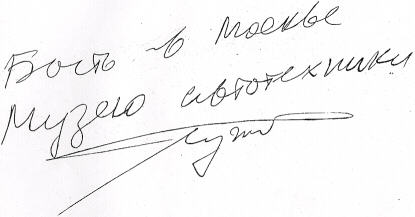 Быть в Москве
Музею автотехники